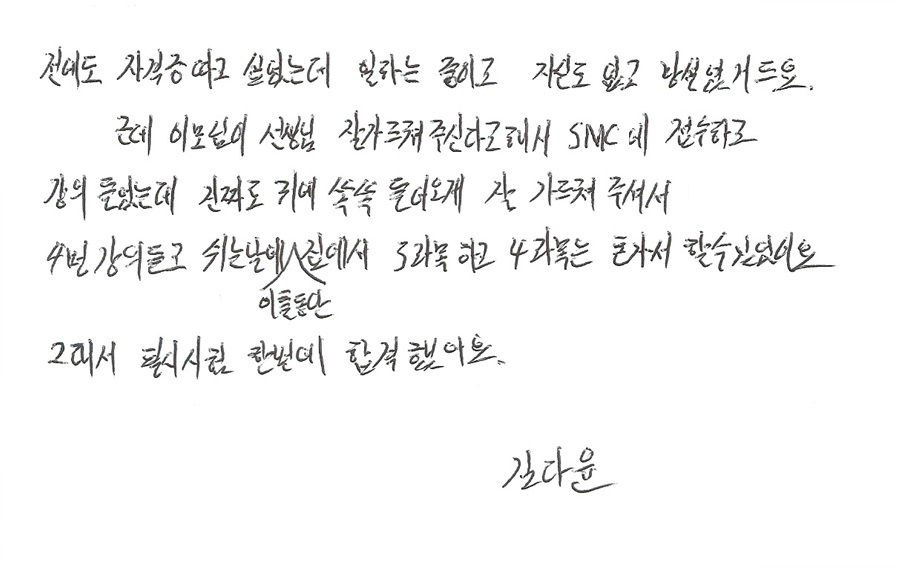 전에도 자격증 따고 싶었는데 일하는 중이고 자신도 없고 망설였거드요.
근데 이모님이 선생님 잘가르쳐주신다고해서 SMC에 접수하고
강의 들었는데 진짜로 귀에 쏙쏙 들어오게 잘 가르쳐 주셔서
4번 강의듣고 쉬는날에 집에서 3과목 하고 4과목는 혼자서 할수있었어요
이틀동안
그래서 필시시험 한번에 합격했어요.
김다윤